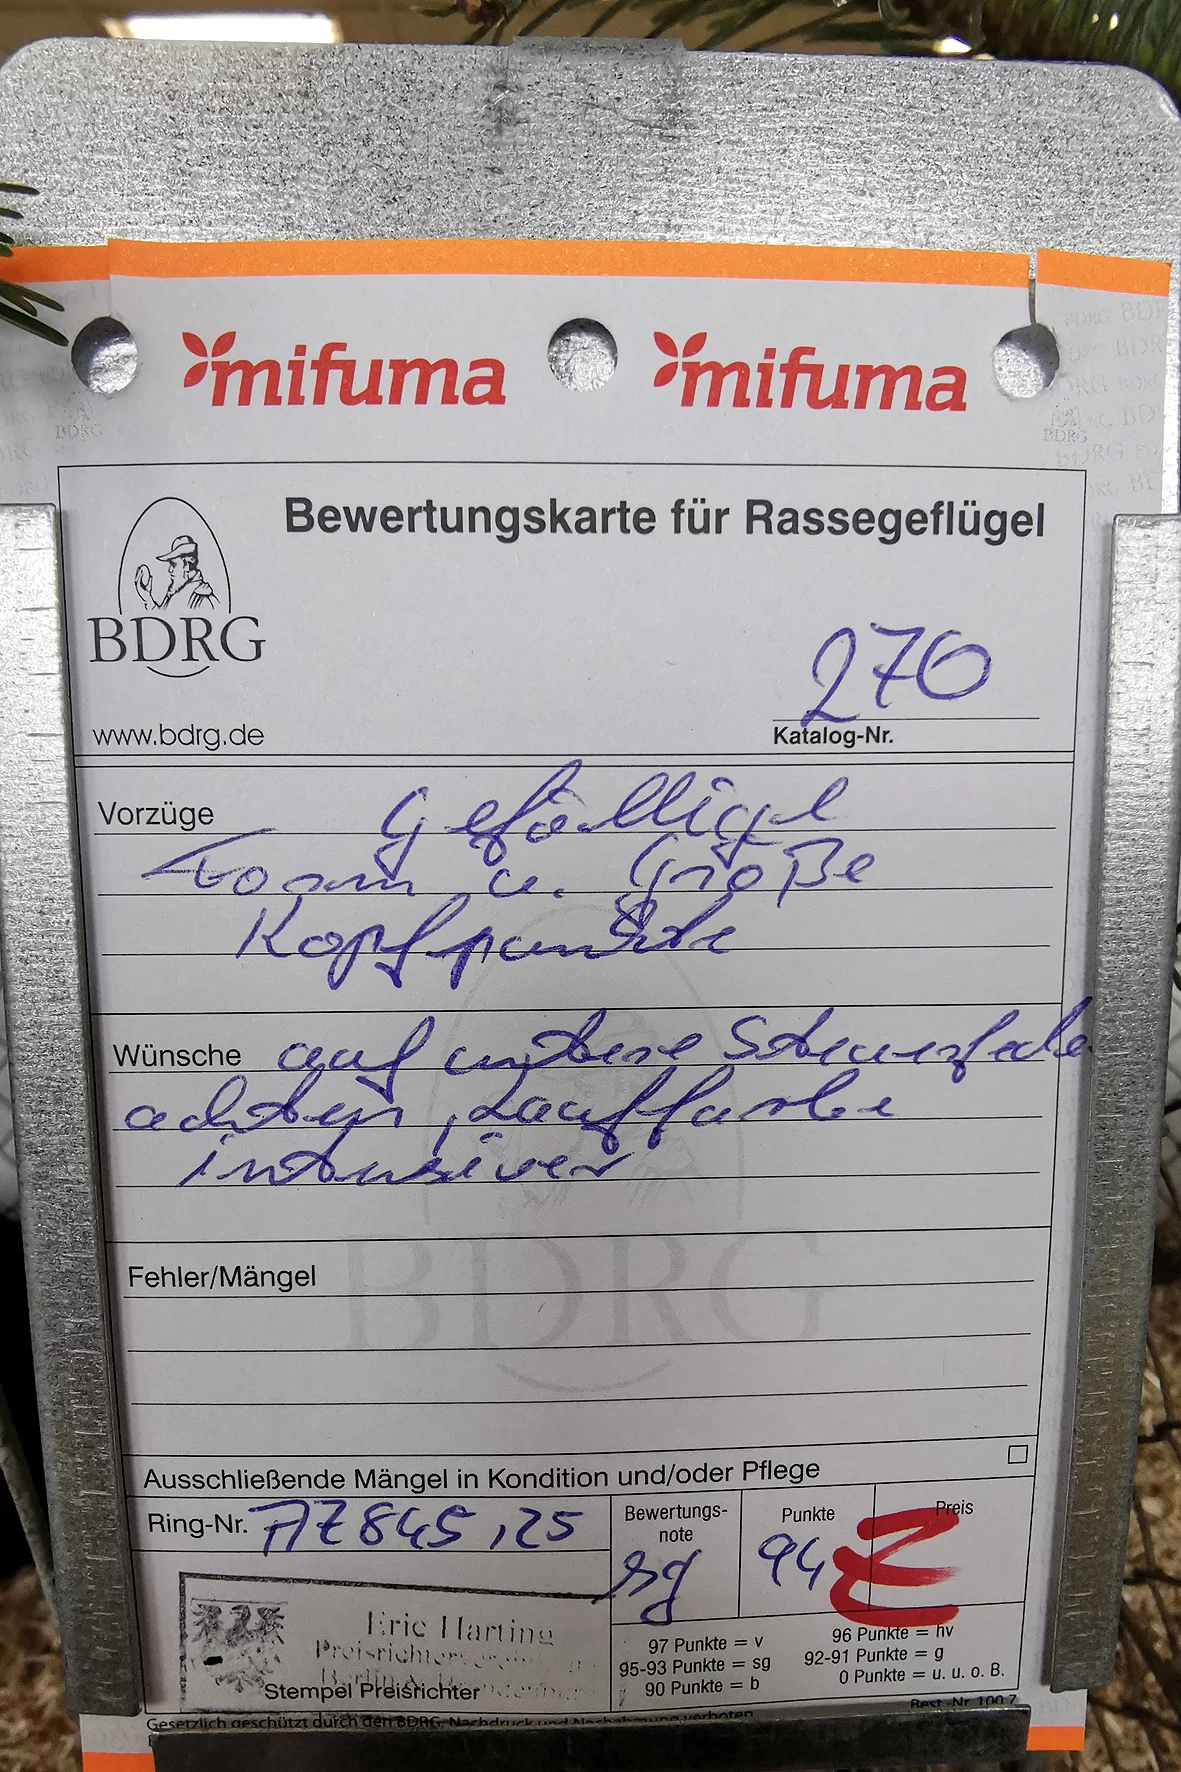 mifuma mifuma
Bewertungskarte für Rassegeflügel
BDRG
www.bdrg.de
270
Katalog-Nr.
Vorzüge Gefällige
Form u. Größe
Kopfpunkte
Wünsche auf untere Steuerfede
achten, Lauffarbe
intensiver
Fehler/Mängel
BDRG
Ausschließende Mängel in Kondition und/oder Pflege
Ring-Nr. AZ 845, 25
Bewertungs-
note
sg
Punkte
94
Preis
E
Eric Harting
Preisrichter
Berlin &
Stempel Preisrichter
97 Punkte = v
95-93 Punkte = sg
90 Punkte = b
96 Punkte = hv
92-91 Punkte = g
0 Punkte = u. u. o. B.
Best.-Nr. 100 7
Gesetzlich geschützt durch den BDRG. Nachdruck und Nachahmung verboten